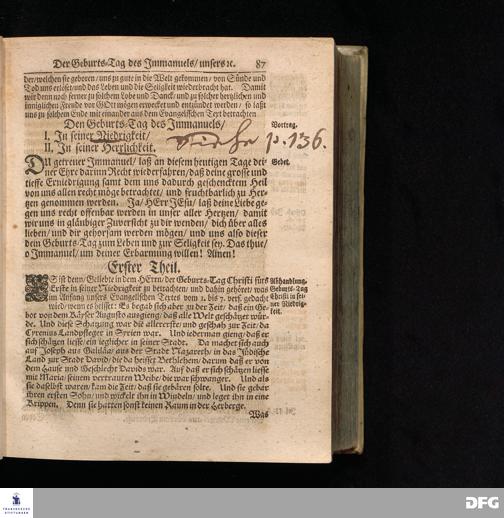 Der Geburts-Tag des Immanuels/ unsers ꝛc. 87
der/welchen sie geboren/ uns zu gute in die Welt gekommen/ von Sünde und
Tod uns erlöset/und das Leben und die Seligkeit wiederbracht hat. Damit
wir denn nach ferner zu solchem Lobe und Danck/ und zu solcher hertzlichen und
inniglichen Freude vor GOtt mögen erwecket und entzündet werden/ so laßt
uns zu solchem Ende mit einander aus dem Evangelischen Text betrachten
Den Geburts-Tag des Immanuels/
I. In seiner Niedrigkeit/
II. In seiner Herrlichkeit.
Vortrag.
Siehe p. 136.
DU getreuer Immanuel/ laß an diesem heutigen Tage dei-
ner Ehre darinn Recht wiederfahren/ daß deine grosse und
tieffe Erniedrigung samt dem uns dadurch geschenckten Heil
von uns allen recht möge betrachtet/ und fruchtbarlich zu Her-
tzen genommen werden. Ja/ HErr JEsu/ laß deine Liebe ge-
gen uns recht offenbar werden in unser aller Hertzen/ damit
wir uns in gläubiger Zuversicht zu dir wenden/ dich über alles
lieben/ und dir gehorsam werden mögen/ und uns also dieser
dein Geburts-Tag zum Leben und zur Seligkeit sey. Das thue/
o Immanuel/ um deiner Erbarmung willen! Amen!
Gebet.
Erster Theil.
ES ist denn/ Geliebte in dem HErrn/ der Geburts-Tag Christi fürs
Erste in seiner Niedrigkeit zu betrachten/ und dahin gehöret/ was
im Anfang unsers Evangelischen Textes vom 1. bis 7. vers. gedacht
wird/ wenn es heisset: Es begab sich aber zu der Zeit/ daß ein Ge-
bot von dem Käyser Augusto ausgieng/ daß alle Welt geschätzet wür-
de. Und diese Schatzung war die allererste/ und geschah zur Zeit/ da
Cyrenius Landpfleger in Syrien war. Und iederman gieng/ daß er
sich schätzen liesse/ ein ieglicher in seiner Stadt. Da machet sich auch
auf Joseph aus Galiläa/ aus der Stadt Nazareth/ in das Jüdische
Land zur Stadt David/ die da heisset Bethlehem/ darum daß er von
dem Hause und Geschlechte Davids war. Auf daß er sich schätzen liesse
mit Maria/ seinem vertrauten Weibe/ die war schwanger. Und als
sie daselbst waren/ kam die Zeit/ daß sie gebären solte. Und sie gebar
ihren ersten Sohn/ und wickelt ihn in Windeln/ und leget ihn in eine
Krippen. Denn sie hatten sonst keinen Raum in der Herberge.
Abhandlung.
Geburts-Tag
Christi in sei-
ner Niedrig-
keit.
Was
FRANCKESCHE
STIFTUNGEN
DFG